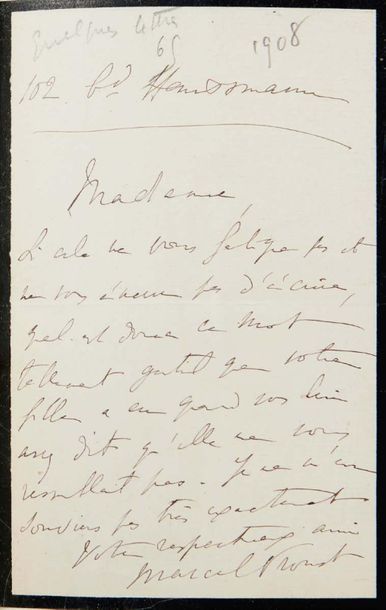 Quelques lettres
65
1908
102 bd Haussmann
Madame,
Si cela ne vous fatigue pas et
ne vous ennuie pas d'écrire,
quel est donc ce mot
tellement gentil que votre
fille a eu quand vous lui
avez dit qu'elle ne vous
ressemblait pas. Je ne m'en
souviens pas très exactement
Votre respectueux ami
Marcel Proust